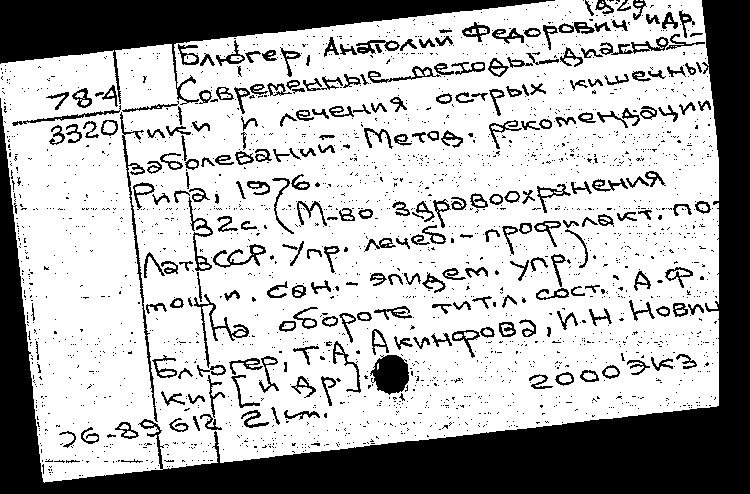 1929
Блюгер, Анатолий Федорович и др.
78-4 Современные методы диагнос-
3320 тики и лечения острых кишечных
заболеваний. Метод. рекомендации
Рига, 1976.
32с. (М-во здравоохранения
ЛатвССР. Упр. лечеб.-профилакт. по-
мощи. Сан.-эпидем. упр.).
На обороте тит.л. сост.: А.Ф.
Блюгер, Т.А. Акинфова, И.Н. Новиц-
кий [и др.].
2000 экз.
76-89612 21см.